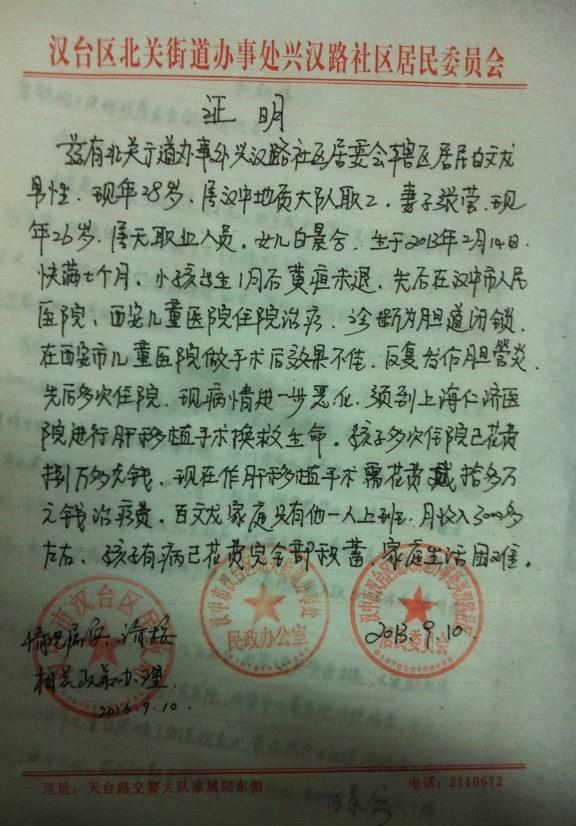 汉台区北关街道办事处兴汉路社区居民委员会
证明
兹有北关街道办事处兴汉路社区居委会辖区居民白文龙
男性、现年28岁、属汉中地质大队职工、妻子张莹、现
年26岁、属无职业人员。女儿白景舍、生于2013年2月14日、
快满七个月、小孩出生1月后黄疸未退、先后在汉中市人民
医院、西安儿童医院住院治疗、诊断为胆道闭锁、
在西安市儿童医院做手术后效果不佳、反复发作胆管炎、
先后多次住院、现病情进一步恶化、须到上海仁济医
院进行肝移植手术换救生命。孩子多次住院已花费
捌万多元钱、现在作肝移植手术需花费贰拾多万
元钱治疗费。白文龙家庭只有他一人上班、月收入3000多
左右、孩子有病已花费完全部积蓄、家庭生活困难。
情况属实、请按
相关政策办理.
2013.9.10.
民政办公室
2013.9.10.
居民委员会
地址:天台路交警大队家属院东侧 电话:2110672